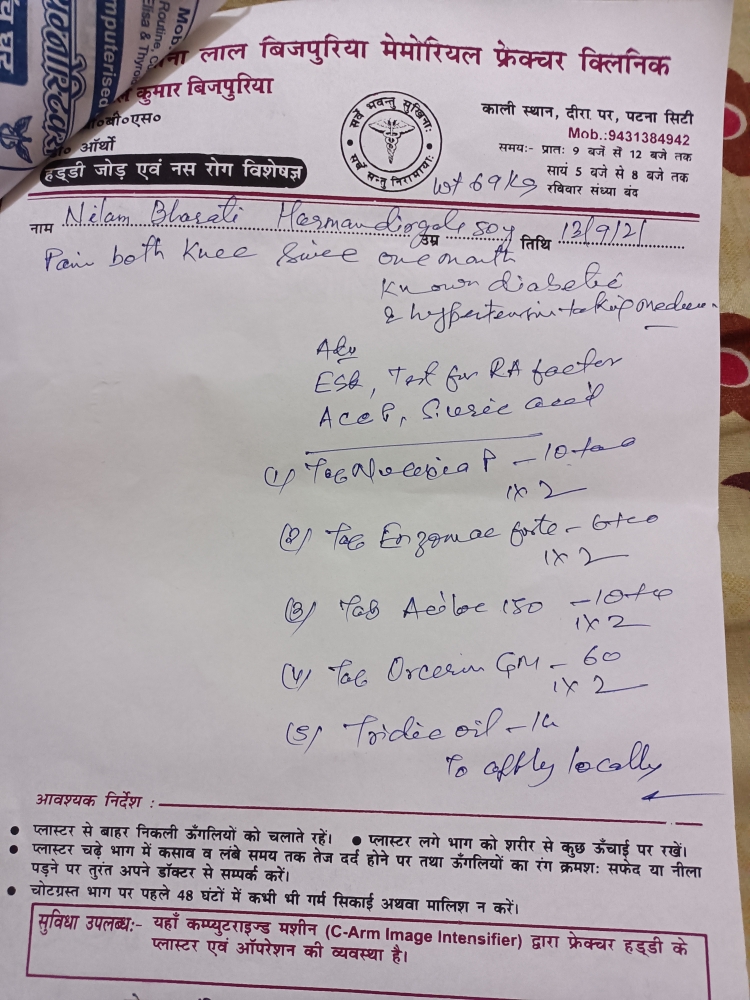 च घर
Mob.
Routine, C
Elisa & Thyro
mputerised
ना लाल बिजपुरिया मेमोरियल फ्रेक्चर क्लिनिक
कुमार बिजपुरिया
बी०एस०
ऑर्थो
हड्डी जोड़ एवं नस रोग विशेषज्ञ
सर्वे भवन्तु सुखिनाः
सर्वे सन्तु निरामयाः
काली स्थान, दीरा पर, पटना सिटी
Mob.:9431384942
समयः- प्रातः 9 बजे से 12 बजे तक
सायं 5 बजे से 8 बजे तक
रविवार संध्या बंद
wt 69 kg
नाम Nilam Bharati उम्र 50y तिथि 13/9/21
Pain both Knee Since one month
Known diabetic
& hypertensive taking
Adv
ESR, Test for RA factor
S. uric acid
(1) Tab P - 10 tab
1x2
(2) Tab Enzomac forte -
1x2
(3) Tab Aciloc 150 - 10
1x2
(4) Tab Orcerin GM - 60
1x2
(5) oil -
To apply locally
आवश्यक निर्देश :
● प्लास्टर से बाहर निकली ऊँगलियों को चलाते रहें। ● प्लास्टर लगे भाग को शरीर से कुछ ऊँचाई पर रखें।
● प्लास्टर चढ़े भाग में कसाव व लंबे समय तक तेज दर्द होने पर तथा ऊँगलियों का रंग क्रमशः सफेद या नीला
पड़ने पर तुरंत अपने डॉक्टर से सम्पर्क करें।
● चोटग्रस्त भाग पर पहले 48 घंटों में कभी भी गर्म सिकाई अथवा मालिश न करें।
सुविधा उपलब्धः- यहाँ कम्प्युटराइज्ड मशीन (C-Arm Image Intensifier) द्वारा फ्रेक्चर हड्डी के
प्लास्टर एवं ऑपरेशन की व्यवस्था है।